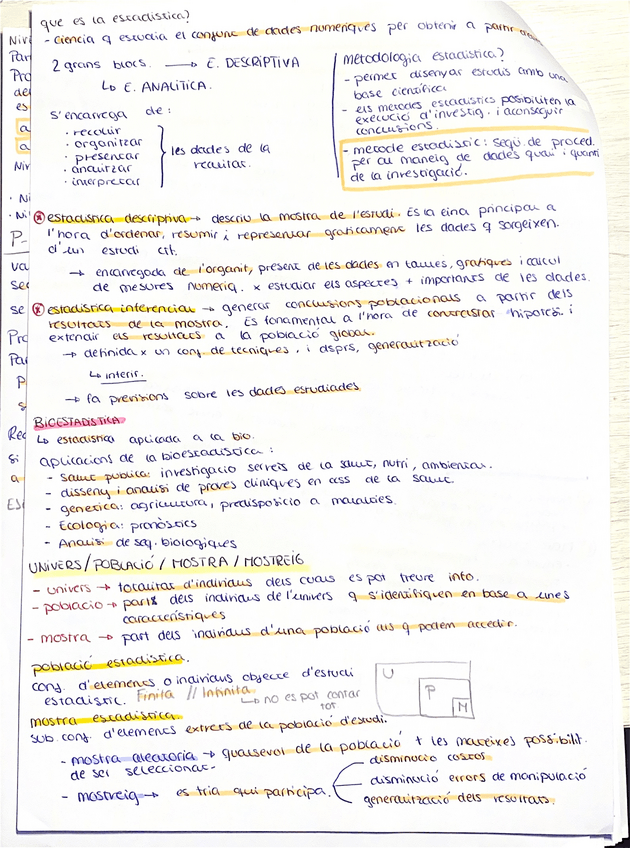 que es la estadística?
- ciencia q estudia el conjunc de dades numeriques per obtenir a partir d'
2 grans blocs. → E. DESCRIPTIVA
↳ E. ANALÍTICA.
s'encarrega de:
· recollir
· organitzar
· presentar
· analitzar
· interpretar
les dades de la realitat.
metodologia estadística?
- permet disenyar estudis amb una
base científica
- els metodes estadistics possibiliten la
execució d'investig. i aconseguir
conclusions.
- metode estadístic: sequ. de proced.
per al maneig de dades quali i quanti
de la investigació.
estadistica descriptiva → descriu la mostra de l'estudi. Es la eina principal a
l'hora d'ordenar, resumir i representar graficament les dades q sorgeixen.
d'un estudi cit.
→ encarregada de l'organit, present de les dades en taules, grafiques i calcul
de mesures numeriq. x estudiar els aspectes + importants de les dades.
estadistica inferencial → generar conclusions poblacionals a partir dels
resultats de la mostra. Es fonamental a l'hora de contrastar hipotesi i
extendir els resultats a la població global.
→ definida x un conj. de tecniques, i dsprs, generalització
↳ interir.
→ fa previsions sobre les dades estudiades
BIOESTADISTICA
↳ estadistica aplicada a la bio.
aplicacions de la bioestadistica:
- Salut publica: investigacio serveis de la salut, nutri, ambiental.
- disseny i analisi de proves cliniques en ccss de la salut.
- genetica: agricultura, predisposicio a malalties.
- Ecologia: pronòstics
- Analisi de seq. biologiques
UNIVERS/POBLACIÓ / MOSTRA / MOSTREIG
- univers → totalitat d'individus dels cuals es pot treure info.
- poblacio → part dels individus de l'univers q s'identifiquen en base a unes
característiques
- mostra → part dels individus d'una població als q podem accedir.
població estadistica.
conj. d'elements o individus objecte d'estudi
estadistic. Finita // Infinita
↳ no es pot contar
tot
U
P
M
mostra estadistica.
sub conj. d'elements extrets de la població d'estudi.
- mostra aleatoria → qualsevol de la població + les mateixes possibilit.
de ser seleccionat.
- mostreig → es tria qui participa.
disminucio costos
disminució errors de manipulació
generalització dels resultats.